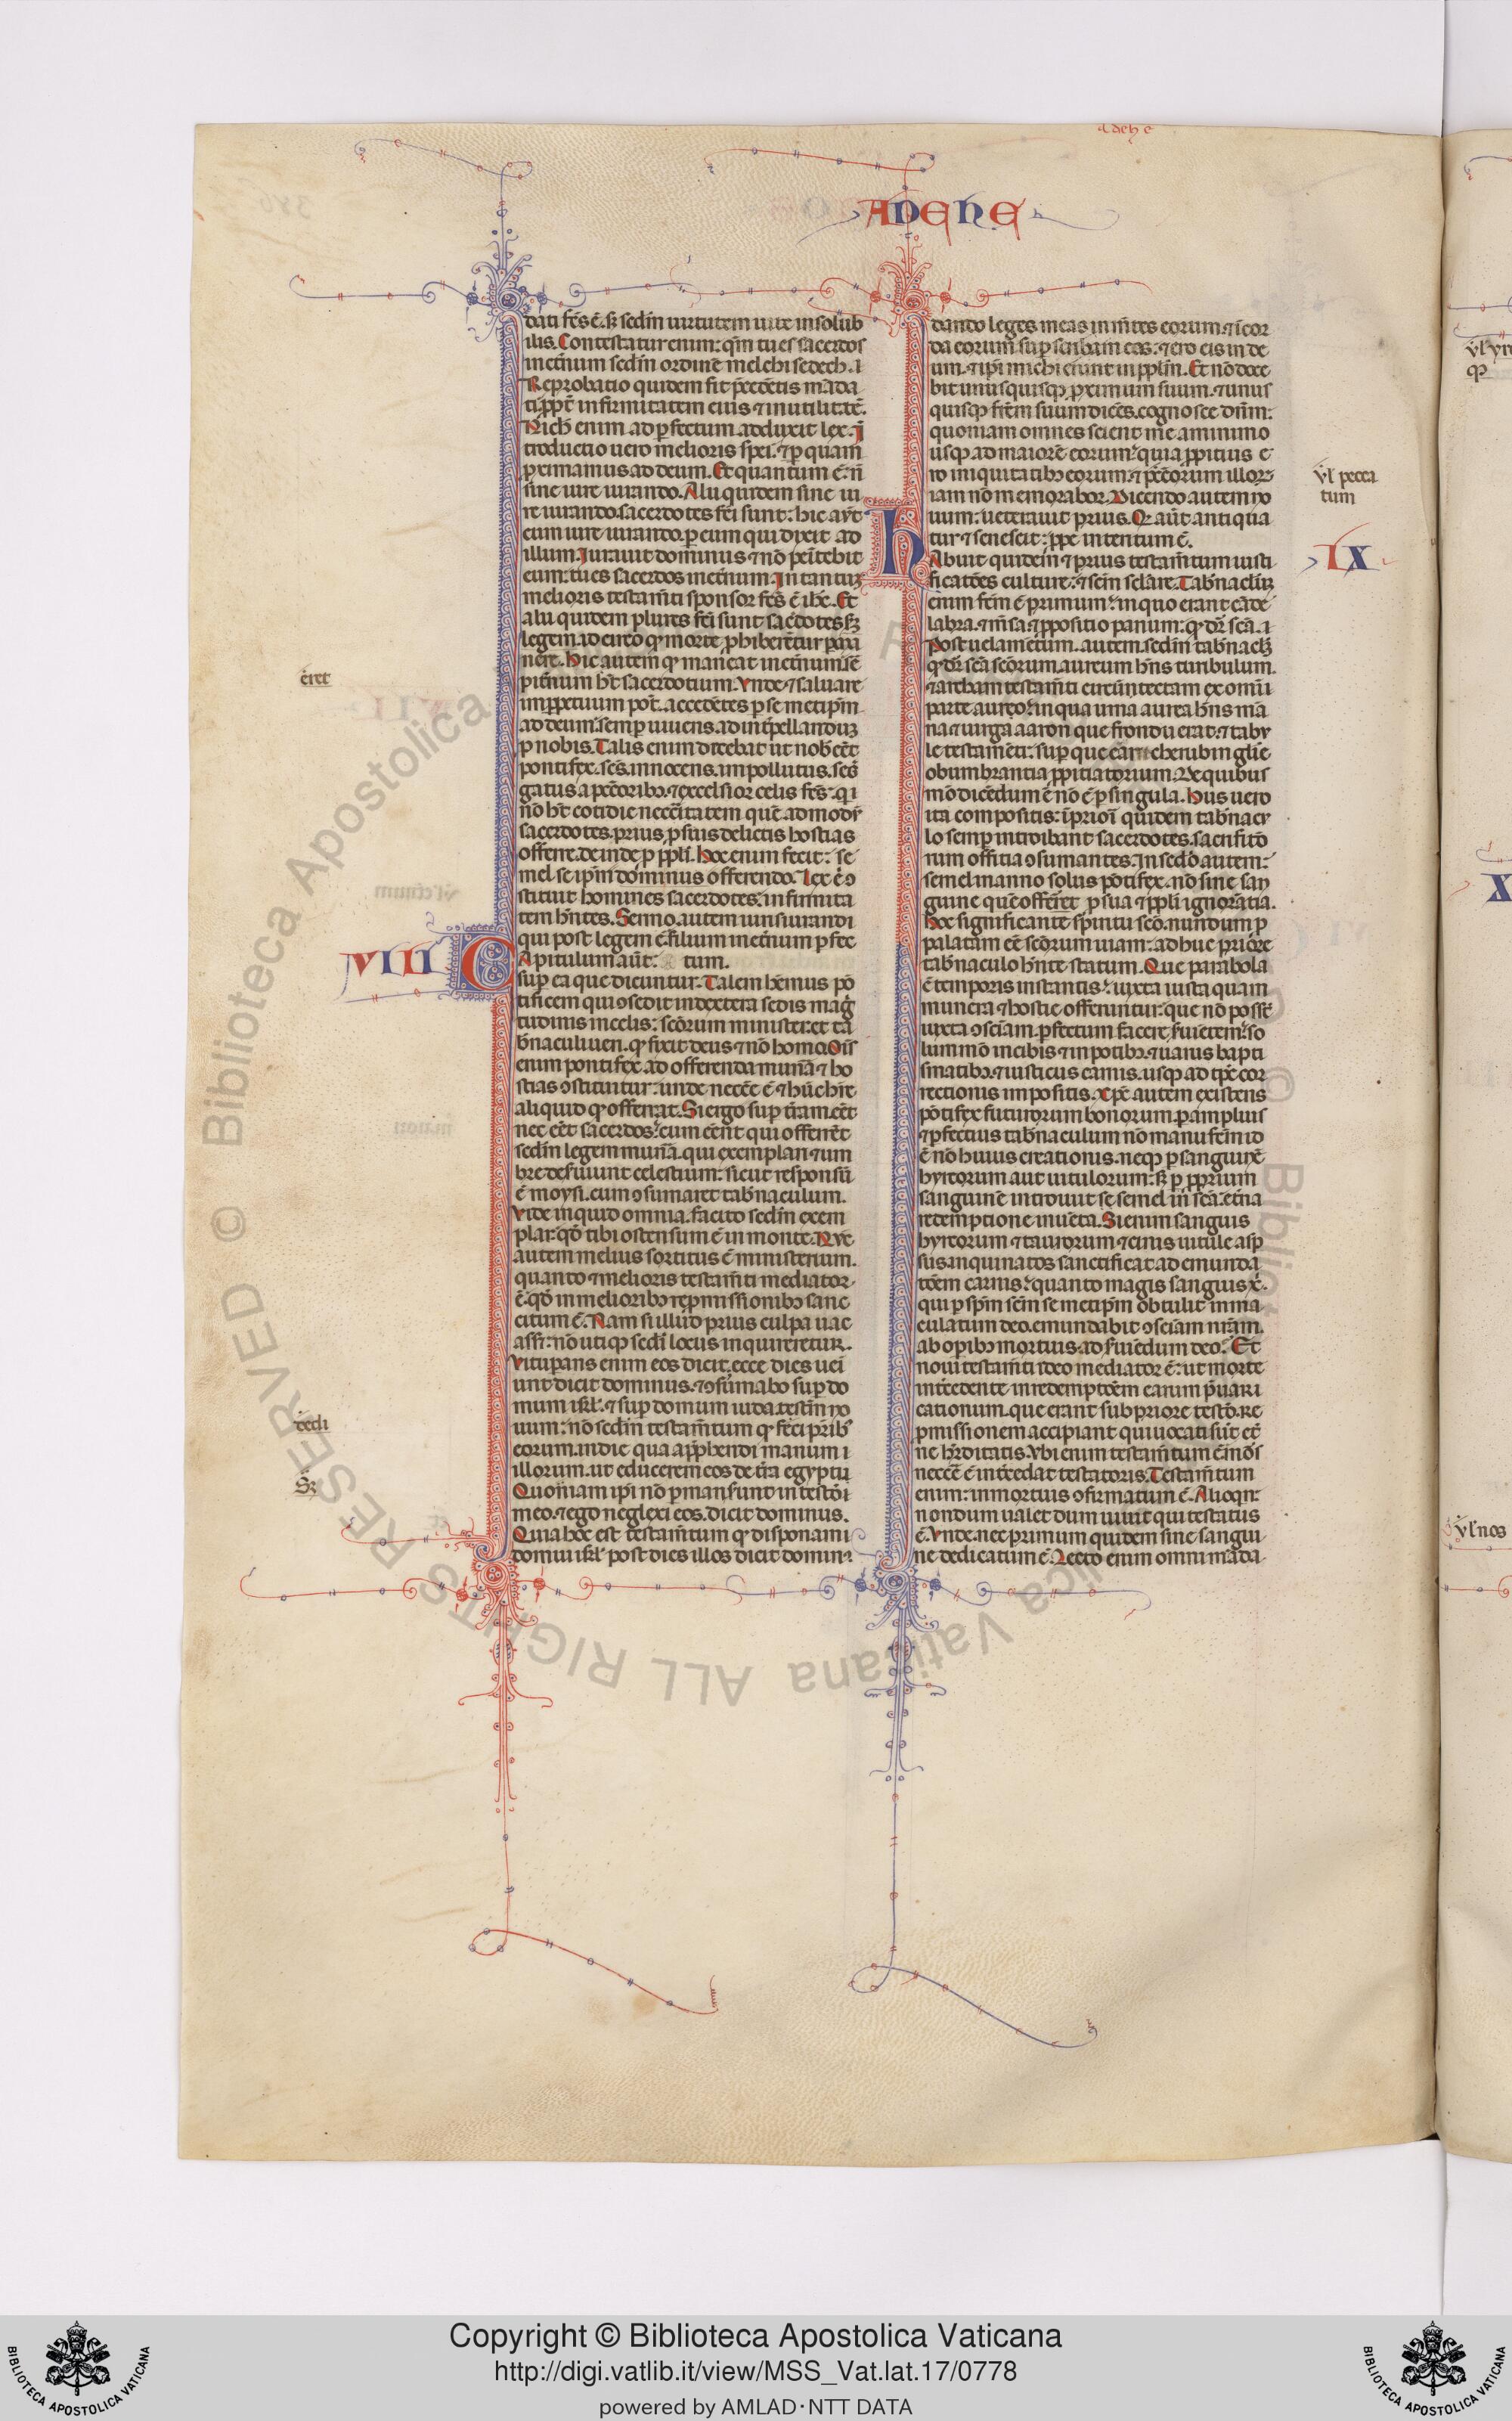 ADEHE
dati fc̄s ē. sꝫ scdm̄ uirtutem uite insolub
ilis. Contestatur enim: qm̄ tu es sacerdos
inet̄num scdm̄ ordinē melchisedech. i
Reprobatio quidem fit p̄cedētis māda
ti ꝓpt̄ infirmitatem eius ⁊ inutilitatē.
Nich̄ enim ad ꝑfectum adduxit lex. Ī
troductio uero melioris spei. ⁊ ꝑ quam
ꝓximamus ad deum. Et quantum ē. n̄
sine iure iurando. Alii quidem sine iu
re iurando. sacerdotes fc̄i sunt: hic aūt
cum iure iurando. ꝑ eum qui dixit ad
illum. Iurauit dominus ⁊ nō penitebit
eum: tu es sacerdos inet̄num. In tantuꝫ
melioris testam̄ti sponsor fc̄s ē ihc̄. Et
alii quidem plures fc̄i sunt sac̄dotes sꝫ
legem. idcirco qꝫ morte ꝓhiberētur ꝑma
nere. Hic autem qꝫ maneat inet̄num: sē
pit̄num ht̄ sacerdotium. Vnde ⁊ saluare
inꝑpetuum pot̄. accedētes ꝑ semetip̄m
ad deum. semꝑ uiuens. ad int̄pellanduꝫ
ꝓ nobis. Talis enim decebat ut nob̄ eēt
pontifex. sc̄s. innocens. impollutus. seḡ
gatus a pec̄toribꝫ. ⁊ excelsior celis fc̄s: qui
nō ht̄ cotidie necc̄itatem quē admodū
sacerdotes. prius ꝓ suis delictis hostias
offerre. deinde ꝓ ppl̄i. Hoc enim fecit: se
mel se ip̄m dominus offerendo. Lex ē ꝯ
stituit homines sacerdotes. infirmita
tem hn̄tes. Sermo. autem iurisiurandi
qui post legem ē. filium inet̄num ꝑfec
tum.
VIII
CApitulum aūt:
suꝑ ea que dicuntur. Talem hēmus pō
tificem qui ꝯsedit indextera sedis maḡ
tudinis incelis: scōrum minister. et ta
b̄naculi ueri. qꝫ fixit deus ⁊ nō homo. Oīs
enim pontifex. ad offerenda munā ⁊ ho
stias ꝯstituitur: unde necēe ē ⁊ hūc hr̄e
aliquid qꝫ offerat. Si ergo suꝑ tr̄am. eēt
nec eēt sacerdos: cum eēnt qui offerrēt
scdm̄ legem munā. qui exemplari ⁊ um
bre deseruiunt celestium: sicut responsū
ē moysi. cum ꝯsumaret tab̄naculum.
Vide inquid omnia. facito scdm̄ exem
plar: qd̄ tibi ostensum ē in monte. Nūc
autem melius sortitus ē ministerium.
quanto ⁊ melioris testam̄ti mediator
ē. qd̄ in melioribꝫ repromissionibꝫ sanc
citum ē. Nam si illud prius culpa uac
asset: nō utiqꝫ scdī locus inquireretur.
Vituꝑans enim eos dicit. ecce dies uei
unt dicit dominus. ⁊ ꝯsūmabo suꝑ do
mum isrl̄. ⁊ suꝑ domum iuda. testm̄ no
uum: nō scdm̄ testam̄tum qꝫ feci pr̄ibꝫ
eorum. indie qua appr̄hendi manum i
illorum. ut educerem eos de tr̄a egypti
Quoniam ip̄i nō ꝑmanserunt in testo i
meo. ⁊ ego neglexi eos. dicit dominus.
Quia hoc est testam̄tum qꝫ disponam i
domui isrl̄ post dies illos dicit dominꝰ
dando leges meas in m̄tes eorum. ⁊ i cor
da eorum suꝑscribam eas: ⁊ ero eis in de
um. ⁊ ip̄i michi erunt in ppl̄m. Et nō doce
bit unusquisqꝫ ꝓximum suum. ⁊ unus
quisqꝫ frēm suum dicēs. cognosce dn̄m:
quoniam omnes scient me a minimo
usqꝫ ad maiorē eorum: quia ꝓpitius e
ro iniquitatibꝫ eorum. ⁊ pec̄torum illoꝝ
iam nō memorabor. Dicendo autem no
uum: ueterauit prius. Qꝫ aūt antiqua
tur ⁊ senescit: ꝓpe interitum ē.
IX
HAbuit quidem ⁊ prius testam̄tum iusti
ficatōes culture: ⁊ scm̄ sclare. Tab̄naclm̄
enim fcm̄ ē primum: in quo erant cāde
labra. ⁊ m̄sa ⁊ ꝓpositio panum: qꝫ dr̄ scā. i
Post uelamētum. autem. scdm̄ tab̄naclm̄
qꝫ dr̄ scā scōrum. aureum hn̄s turibulum.
⁊ archam testam̄ti circūntectam ex omni
parte auro: in qua urna aurea hn̄s mā
na ⁊ uirga aaron que fronduerat. ⁊ tabu
le testamēti: suꝑ que eam cherubin glīe
obumbrantia ꝓpitiatorium. De quibus
mō dicēdum ē nō ē ꝑ singula. His uero
ita compositis: ī priori quidem tab̄nacu
lo semꝑ introibant sacerdotes. sacrificio
rum offitia ꝯsumantes. In scdō autem:
semel in anno solus pōtifex. nō sine san
guine quē offerret ꝓ sua ⁊ ppl̄i ignorātia.
Hoc significante spiritu scō. nundum ꝓ
palatam eē scōrum uiam: adhuc priore
tab̄naculo hn̄te statum. Que parabola
ē temporis instantis: iuxta iusta quam
munera ⁊ hostie offeruntur: que nō possūt
iuxta ꝯsciam. ꝑfectum facere seruiētem: so
lummō in cibis ⁊ in potibꝫ. ⁊ uariis bapti
smatibꝫ. ⁊ iusticiis carnis. usqꝫ ad tp̄c cor
rectionis impositis. Xp̄c autem existens
pōtifex futurorum bonorum. ꝑ amplius
⁊ ꝑfectius tab̄naculum nō manufcm̄ id
ē nō huius creationis. neqꝫ ꝑ sanguinē
hyrcorum aut uitulorum: sꝫ ꝑ ꝓprium
sanguinē introiuit se semel in scā. et̄na
redemptione inuēta. Si enim sanguis
hyrcorum ⁊ taurorum ⁊ cinis uitule asꝑ
sus. inquinatos sanctificat ad emunda
tōem carnis: quanto magis sanguis xp̄i.
qui ꝑ spm̄ scm̄ semetip̄m obtulit inma
culatum deo. emundabit ꝯsciam nr̄am.
ab opibꝫ mortuis. ad seruiēdum deo. Et
noui testam̄ti ideo mediator ē: ut morte
intercedente. in redemptōem earum p̄uari
cationum. que erant sub priore testo. Re
promissionem accipiant qui uocati sūt et̄
ne hr̄ditatis. Vbi enim testam̄tum ē: mōs
necēe ē intercedat testatoris. Testam̄tum
enim: in mortuis ꝯfirmatum ē. Alioqn̄:
nondum ualet dum uiuit qui testatus
ē. Vnde. nec primum quidem sine sangui
ne dedicatum ē. Lecto enim omni māda
ēret
dedi
vl̄ pecca
tum
vl̄ nos
Copyright © Biblioteca Apostolica Vaticana
http://digi.vatlib.it/view/MSS_Vat.lat.17/0778
powered by AMLAD·NTT DATA
BIBLIOTECA APOSTOLICA VATICANA
BIBLIOTECA APOSTOLICA VATICANA
© Biblioteca Apostolica Vaticana ALL RIGHTS RESERVED